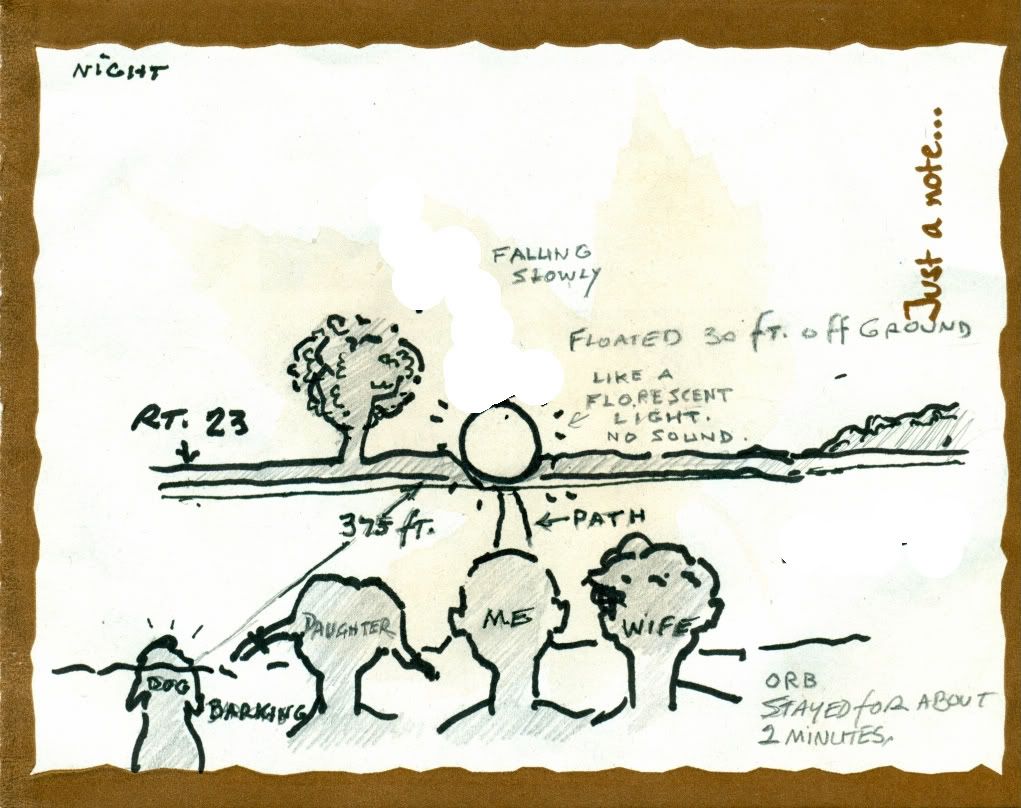 NIGHT
Just a note...
FALLING
SLOWLY
FLOATED 30 ft. off GROUND
LIKE A
FLORESCENT
LIGHT.
NO SOUND.
RT. 23
375 ft.
PATH
DAUGHTER
ME
WIFE
DOG
BARKING
ORB
STAYED FOR ABOUT
2 MINUTES.